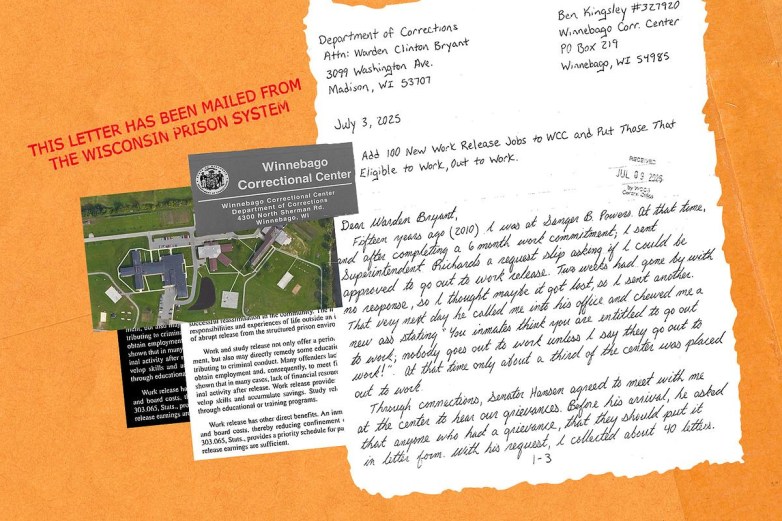 THIS LETTER HAS BEEN MAILED FROM
THE WISCONSIN PRISON SYSTEM
Winnebago
Correctional Center
Winnebago Correctional Center
Department of Corrections
4300 North Sherman Rd.
Winnebago, WI
responsibilities and experiences of life outside an
of abrupt release from the structured prison enviro
Work and study release not only offer a peri
ment, but also may directly remedy some educati
tributing to criminal conduct. Many offenders lac
obtain employment and, consequently, to meet fi
shown that in many cases, lack of financial resour
inal activity after release. Work release provide
velop skills and accumulate savings. Study rel
through educational or training programs.
Work release has other direct benefits. An inm
and board costs, thereby reducing confinement
303.065, Stats., provides a priority schedule for pa
release earnings are sufficient.
ment, but also may
tributing to crimin
obtain employmen
shown that in many
inal activity after
velop skills and
through educatio
Work release ha
and board costs,
303.065, Stats., p
release earnings a
Department of Corrections
Attn: Warden Clinton Bryant
3099 Washington Ave.
Madison, WI 53707
Ben Kingsley #327920
Winnebago Corr. Center
PO Box 219
Winnebago, WI 54985
July 3, 2025
Add 100 New Work Release Jobs to WCC and Put Those That
Eligible to Work, Out to Work.
RECEIVED
JUL 09 2025
Dear Warden Bryant,
Fifteen years ago (2010) I was at Sanger B. Powers. At that time,
and after completing a 6 month work commitment, I sent
Superintendent Richards a request slip asking if I could be
approved to go out to work release. Two weeks had gone by with
no response, so I thought maybe it got lost, so I sent another.
That very next day he called me into his office and chewed me a
new ass stating "You inmates think you are entitled to go out
to work; nobody goes out to work unless I say they go out to
work!". At that time only about a third of the center was placed
out to work.
Through connections, Senator Hansen agreed to meet with me
at the center to hear our grievances. Before his arrival, he asked
that anyone who had a grievance, that they should put it
in letter form. With his request, I collected about 40 letters.
1-3